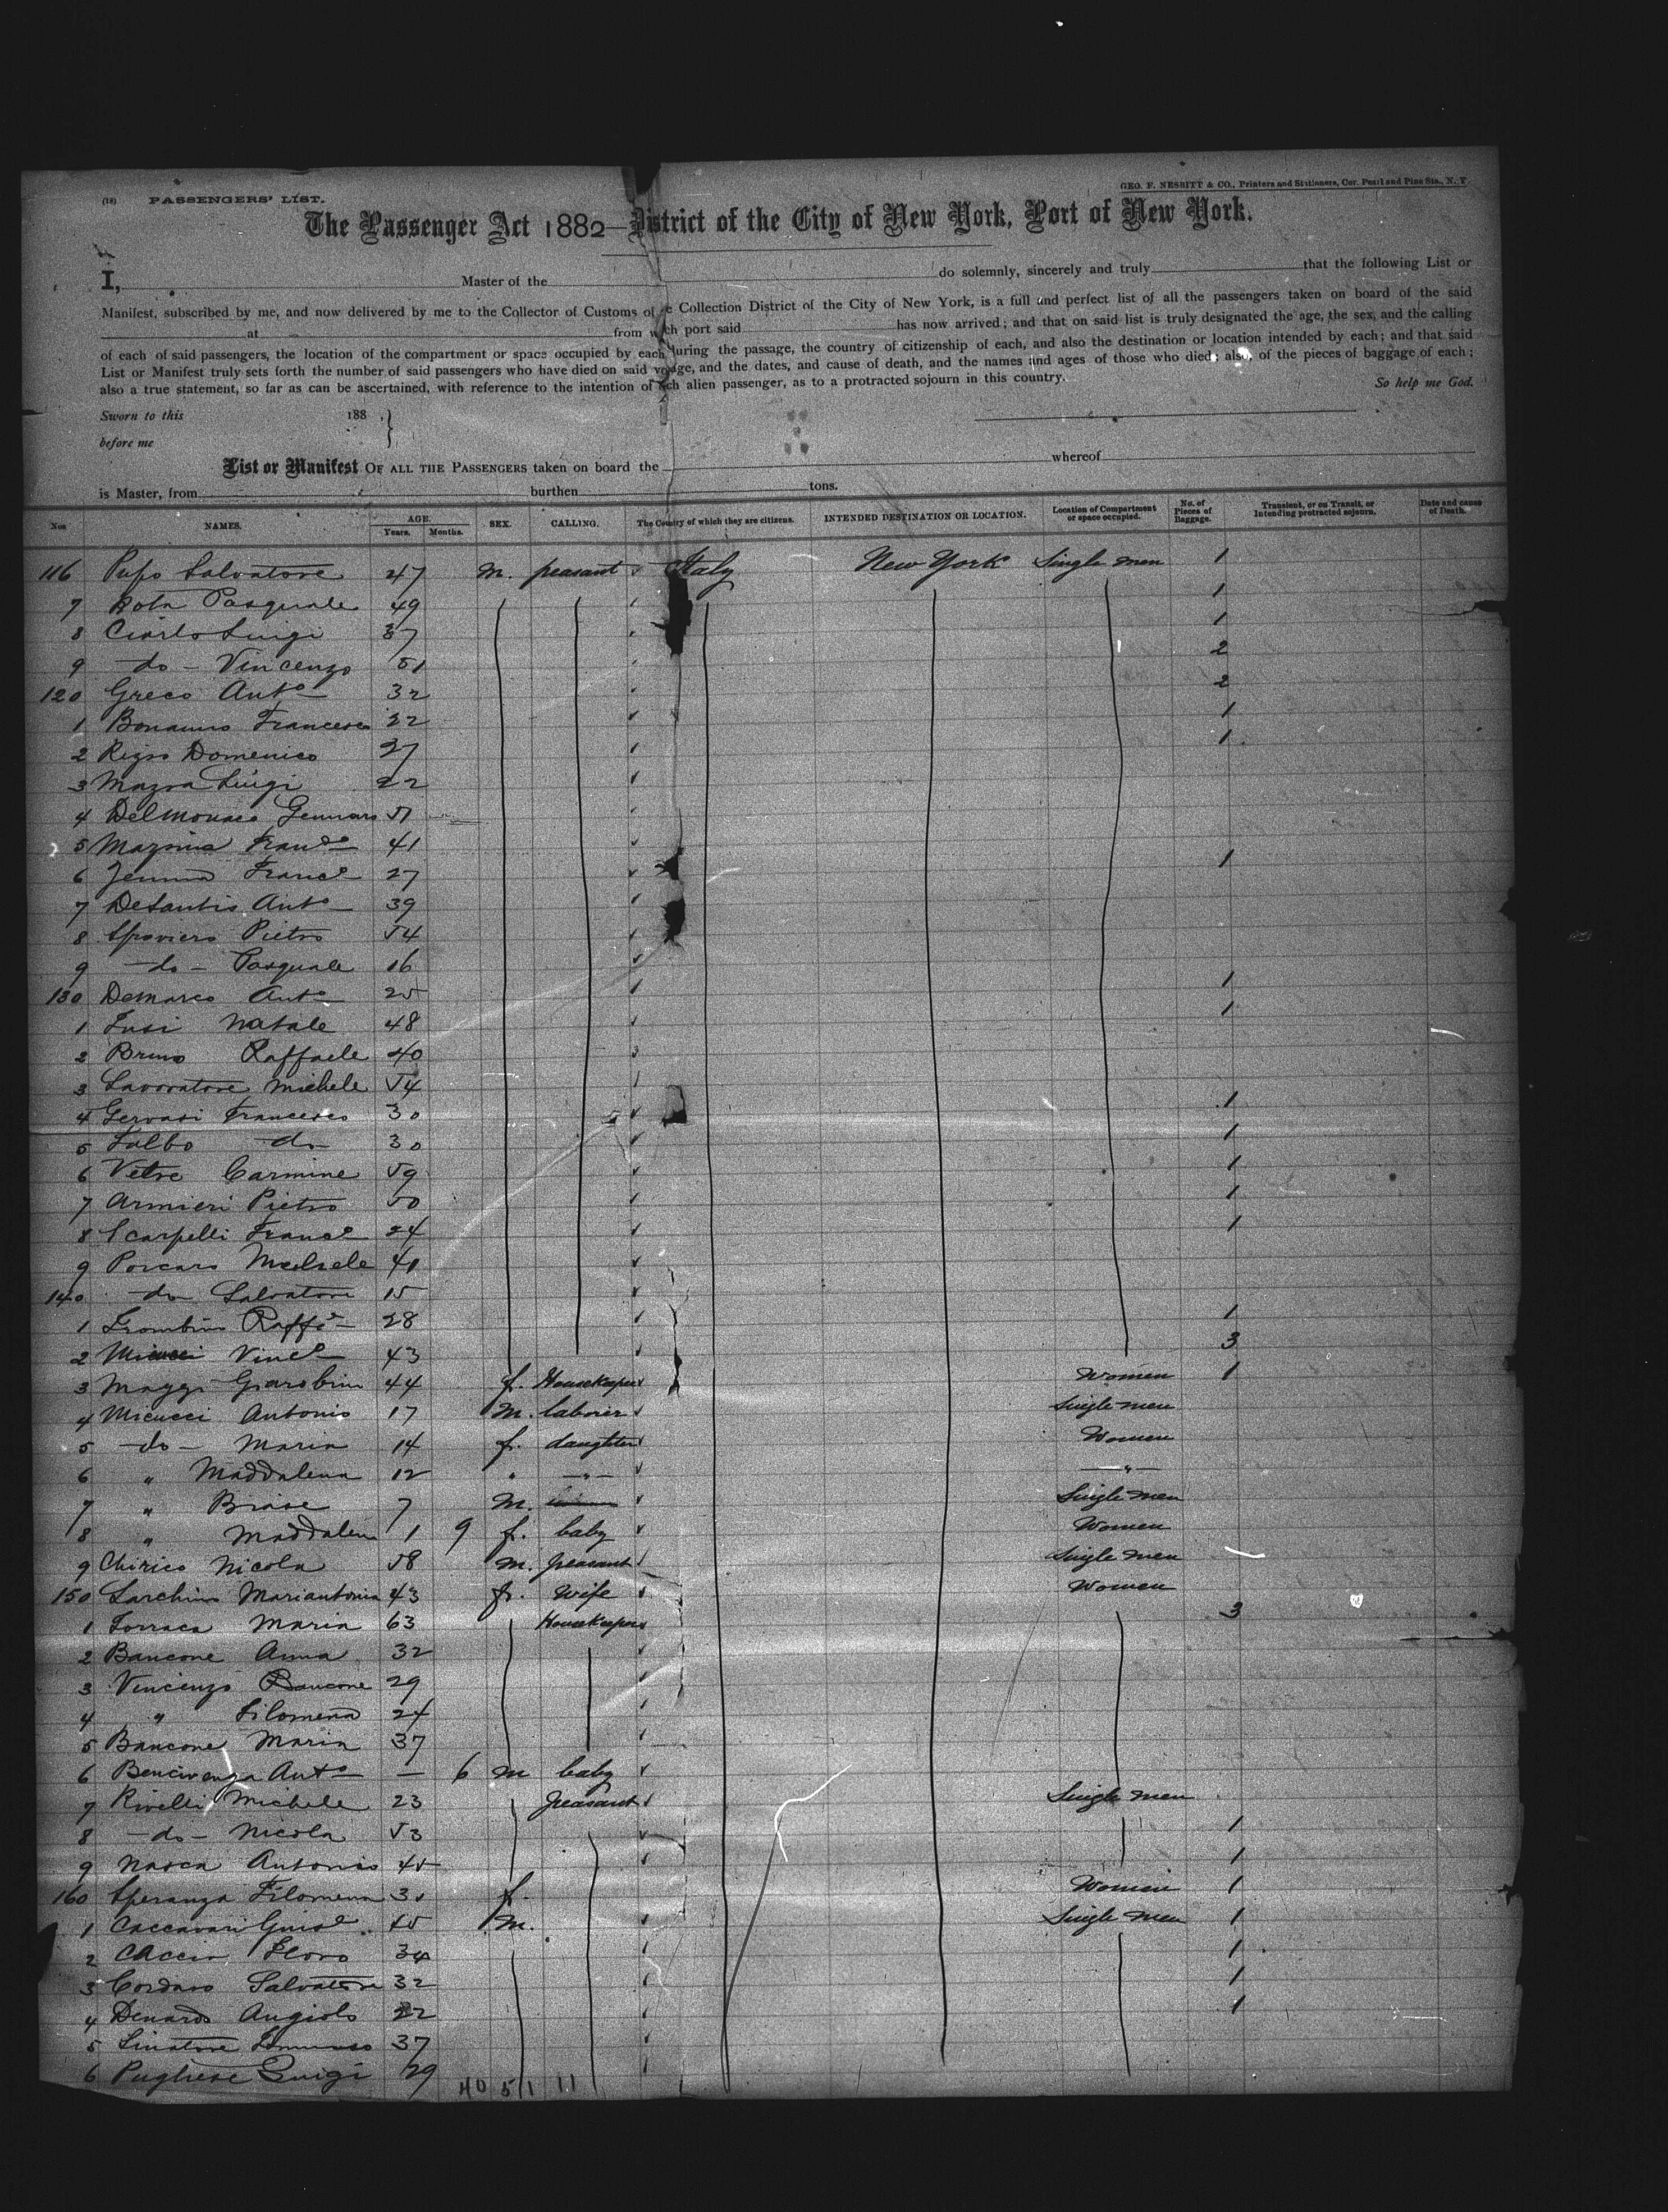 GEO. F. NESBITT & CO., Printers and Stationers, Cor. Pearl and Pine Sts., N. Y.
(18) PASSENGERS' LIST.
The Passenger Act 1882—District of the City of New York, Port of New York.
I, Master of the do solemnly, sincerely and truly that the following List or
Manifest, subscribed by me, and now delivered by me to the Collector of Customs of e Collection District of the City of New York, is a full and perfect list of all the passengers taken on board of the said
at from w ch port said has now arrived; and that on said list is truly designated the age, the sex, and the calling
of each of said passengers, the location of the compartment or space occupied by each during the passage, the country of citizenship of each, and also the destination or location intended by each; and that said
List or Manifest truly sets forth the number of said passengers who have died on said voyage, and the dates, and cause of death, and the names and ages of those who died; also, of the pieces of baggage of each;
also a true statement, so far as can be ascertained, with reference to the intention of each alien passenger, as to a protracted sojourn in this country. So help me God.
Sworn to this 188 ,}
before me
List or Manifest OF ALL THE PASSENGERS taken on board the whereof
is Master, from burthen tons.
Nos NAMES. AGE. Years. Months. SEX. CALLING. The Country of which they are citizens. INTENDED DESTINATION OR LOCATION. Location of Compartment or space occupied. No. of Pieces of Baggage. Transient, or on Transit, or Intending protracted sojourn. Date and cause of Death.
116 Pupo Salvatore 47 m. peasant Italy New York Single men 1
7 Rota Pasquale 49 1
8 Ciarlo Luigi 37 1
9 -do- Vincenzo 51 2
120 Greco Anto 32 2
1 Bonanno Francesco 22 1
2 Domenico 27 1
3 Luigi 22
4 Delmonaco Gennaro 51
5 41
6 Francо 27 1
7 Desantis Anto 39
8 Spoviero Pietro 54
9 -do- Pasquale 16
130 Demarco Anto 25 1
1 Natale 48 1
2 Bruno Raffaele 40
3 Lavoratore Michele 54
4 Gervasi Francesco 30 1
5 do 30 1
6 Vetre Carmine 59 1
7 Armieri Pietro 50 1
8 Scarpelli Franco 24 1
9 Porcaro Michele 41
140 do Salvatore 15
1 28 1
2 Micucci Vinco 43 3
3 Maggi 44 f. Housekeeper Women 1
4 Micucci Antonio 17 m. laborer Single men
5 -do- Maria 14 f. daughter Women
6 " Maddalena 12 " -"- -"-
7 " Biase 7 m. Single men
8 " Maddalena 1 9 f. baby Women
9 Chirico Nicola 58 m. peasant Single men
150 Mariantonia 43 f. Wife Women
1 Torraca Maria 63 Housekeeper 3
2 Bancone Anna 32
3 Vincenzo Bancone 29
4 " Filomena 24
5 Bancone Maria 37
6 Bencivenga Anto — 6 m baby
7 Rivelli Michele 23 peasant Single men
8 -do- Nicola 53 1
9 Nasca Antonio 45 1
160 Speranza Filomena f. Women 1
1 Caccavari 45 m. Single men 1
2 34 1
3 Cordaro Salvatore 32 1
4 Angiolo 22 1
5 37
6 Pugliese Luigi 29
40 5 1 11